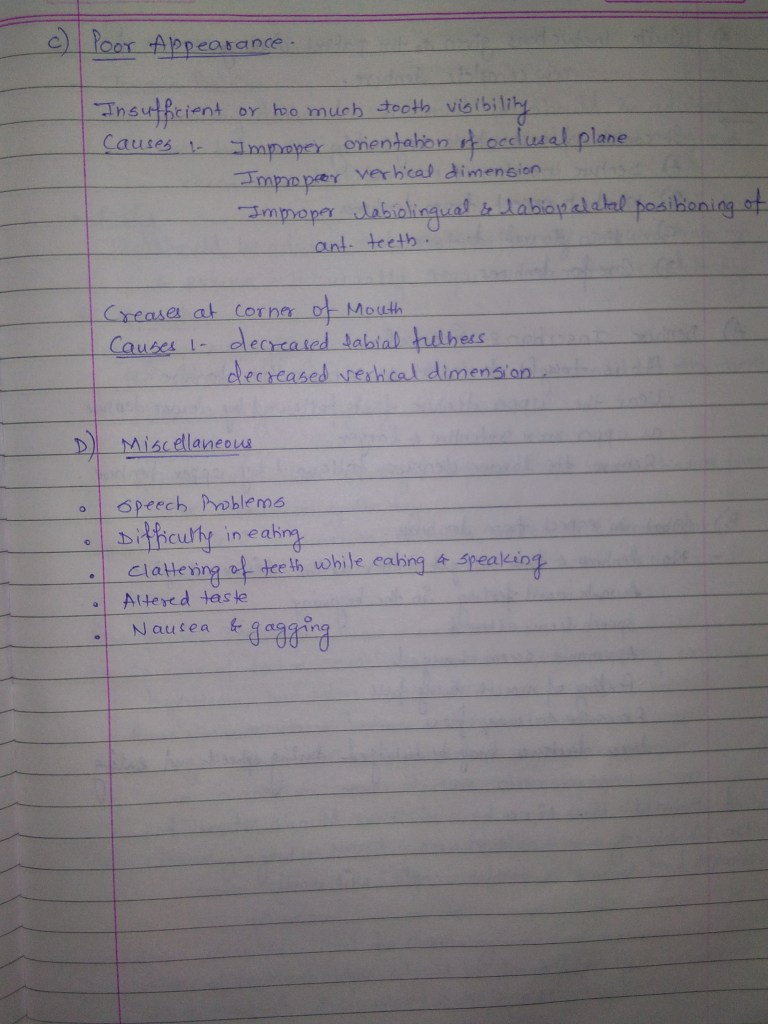 C) Poor Appearance.
Insufficient or too much tooth visibility
Causes :- Improper orientation of occlusal plane
Improper vertical dimension
Improper labiolingual & labiopalatal positioning of
ant. teeth.
Creases at corner of Mouth
Causes :- decreased labial fullness
decreased vertical dimension.
D) Miscellaneous
• Speech Problems
• Difficulty in eating
• Clattering of teeth while eating & speaking
• Altered taste
• Nausea & gagging